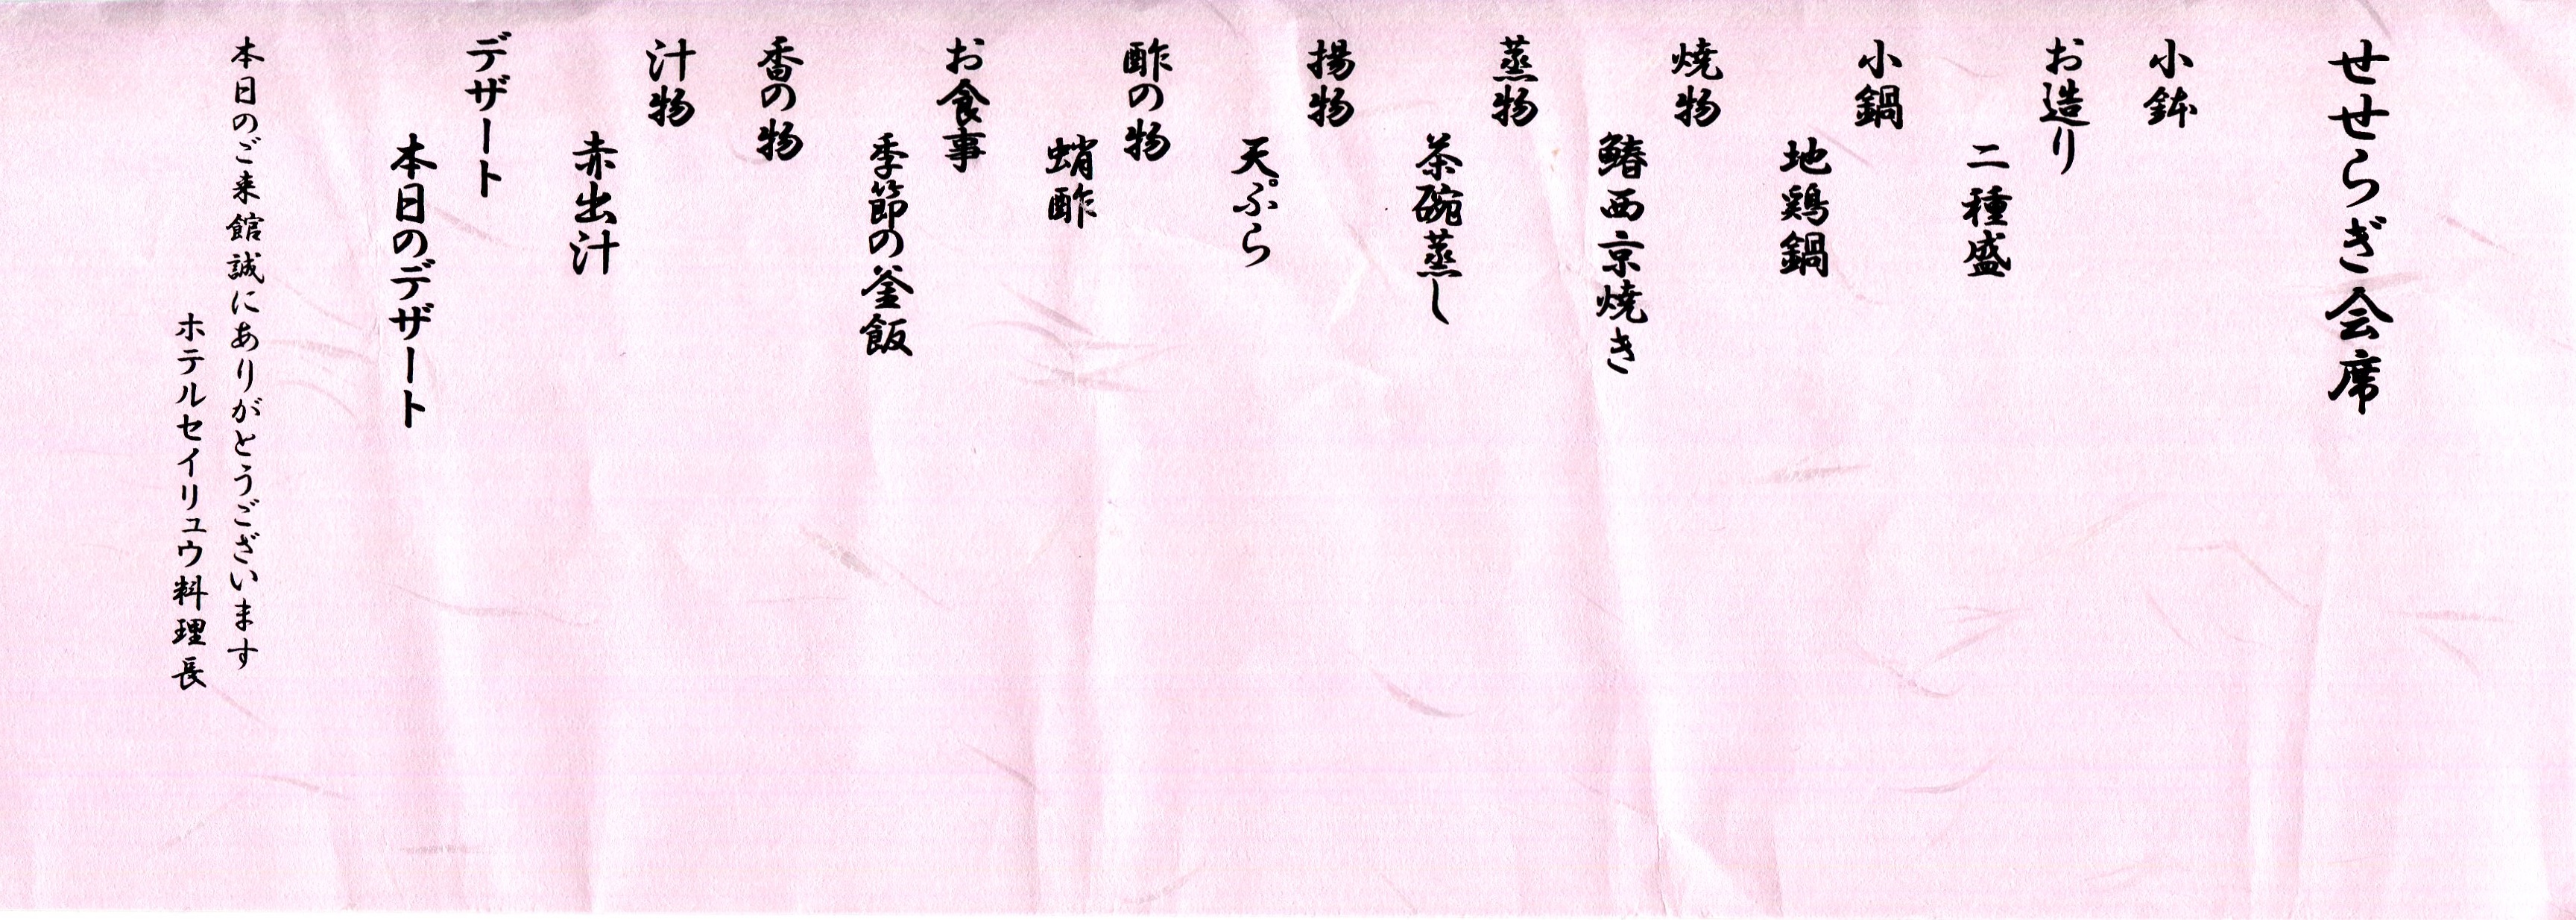 せせらぎ会席
小鉢
お造り
二種盛
小鍋
地鶏鍋
焼物
鰆西京焼き
蒸物
茶碗蒸し
揚物
天ぷら
酢の物
蛸酢
お食事
季節の釜飯
香の物
汁物
赤出汁
デザート
本日のデザート
本日のご来館誠にありがとうございます
ホテルセイリュウ料理長